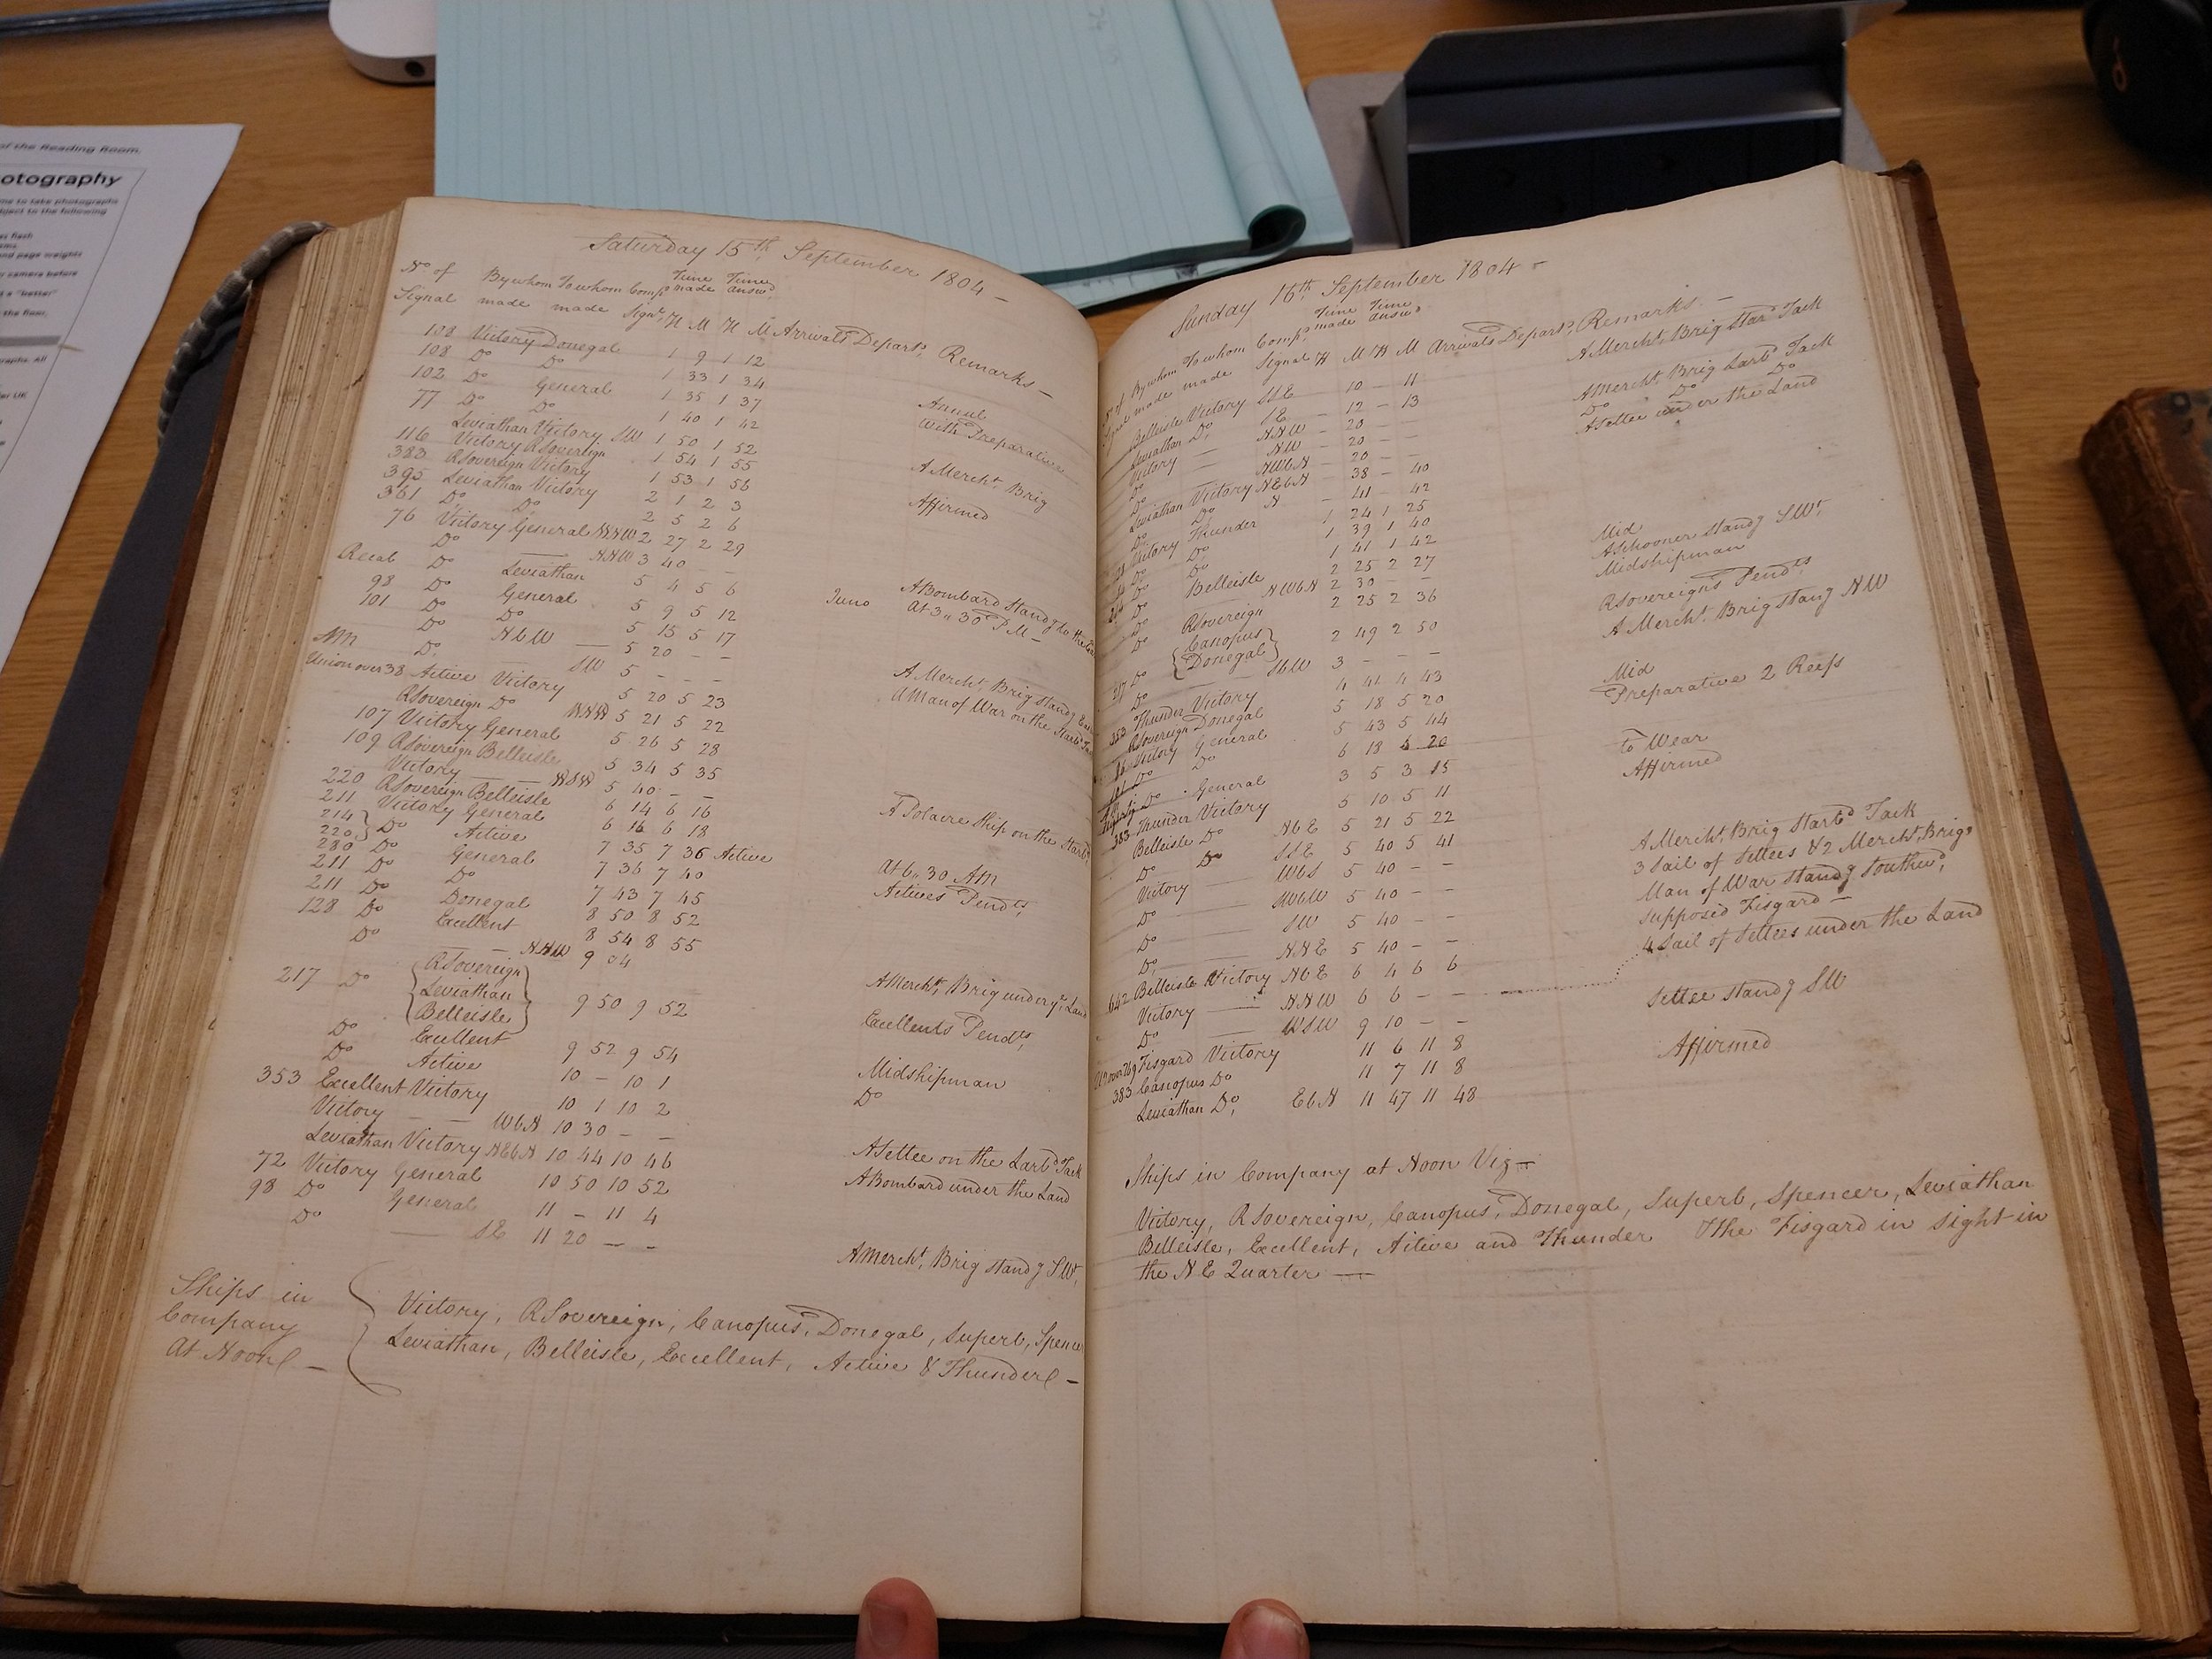 of the Reading Room.
otography
me to take photographs
bject to the following
Saturday 15th September 1804 –
No of By whom To whom Comps Time Time
Signal made made Signl made answd
H M H M Arrivals Departs Remarks –
108 Victory Donegal 1 9 1 12
108 Do Do 1 33 1 34 Annul
102 Do General 1 35 1 37 With Preparative
77 Do Do 1 40 1 42
Leviathan Victory SW 1 50 1 52 A Mercht Brig
116 Victory RSovereign 1 54 1 55
383 RSovereign Victory 1 53 1 56 Affirmed
395 Leviathan Victory 2 1 2 3
361 Do Do 2 5 2 6
76 Victory General NNW 2 27 2 29
Do — NNW 3 40 – – A Bombard Standg to the
Recal Do Leviathan 5 4 5 6 Juno At 3,, 30 PM –
98 Do General 5 9 5 12
101 Do Do 5 15 5 17
Do NbW — 5 20 – – A Mercht Brig standg
Do SW 5 – – – A Man of War on the Starbd
Union over 38 Active Victory 5 20 5 23
RSovereign Do NNW 5 21 5 22
107 Victory General 5 26 5 28
109 RSovereign Belleisle 5 34 5 35
Victory — 5 40 – – A Polaire Ship on the Starbd
220 RSovereign Belleisle 6 14 6 16
211 Victory General 6 16 6 18 At 6,, 30 AM
214 } Do Active 7 35 7 36 Active Actives Pendts
220
280 Do General 7 36 7 40
211 Do Do 7 43 7 45
211 Do Donegal 8 50 8 52
128 Do Excellent 8 54 8 55
Do — NNW 9 04 A Mercht Brig under ye Land
217 Do { RSovereign
Leviathan } 9 50 9 52 Excellents Pendts
Belleisle
Do Excellent 9 52 9 54 Midshipman
Do Active 10 – 10 1 Do
353 Excellent Victory 10 1 10 2
Victory — WbN 10 30 – – A Settee on the Larbd Tack
Leviathan Victory NEbN 10 44 10 46 A Bombard under the Land
72 Victory General 10 50 10 52
98 Do General 11 – 11 4
Do — SE 11 20 – – A Mercht Brig standg SW
Ships in
Company
At Noon –
Victory, RSovereign, Canopus, Donegal, Superb,
Leviathan, Belleisle, Excellent, Active & Thunder –
Sunday 16th September 1804 –
By whom To whom Comps Time Time
made made Signal made answd
H M H M Arrivals Departs Remarks –
Belleisle Victory SSE 10 – 11 A Mercht Brig Starbd Tack
Leviathan Do SE – 12 – 13 A Mercht Brig Larbd Tack
Victory — NNW – 20 – – Do Do Do
Do NW – 20 – – A Settee under the Land
Do NWbN – 20 – –
Leviathan Victory NEbN – 38 – 40
Do Do N – 41 – 42
Victory Thunder 1 24 1 25 Mid
Do Do 1 39 1 40 A Schooner Standg SWt
Do Do 1 41 1 42 Midshipman
Do Belleisle 2 25 2 27 RSovereigns Pendts
Do NWbN 2 30 – – A Mercht Brig Stang NW
Do RSovereign 2 25 2 36
Do { Canopus
Donegal } 2 49 2 50 Mid
Do — SbW 3 – – – Preparative 2 Reefs
353 Thunder Victory 4 41 4 43
RSovereign Donegal 5 18 5 20 to Wear
Victory General 5 43 5 44 Affirmed
Do Do 6 18 6 20
Do General 3 5 3 15
383 Thunder Victory 5 10 5 11
Belleisle Do NbE 5 21 5 22 A Mercht Brig Starbd Tack
Do Do SSE 5 40 5 41 3 Sail of Settees & 2 Mercht Brigs
Victory — WbS 5 40 – – Man of War standg Southwd
Do — SWbW 5 40 – – supposed Fisgard –
Do — SW 5 40 – – 4 Sail of Settees under the Land
Do — NNE 5 40 – –
642 Belleisle Victory NbE 6 4 6 6
Victory — NNW 6 6 – – Settee standg SW
Do — WSW 9 10 – –
Fisgard Victory 11 6 11 8 Affirmed
383 Canopus Do 11 7 11 8
Leviathan Do EbN 11 47 11 48
Ships in Company at Noon Viz –
Victory, RSovereign, Canopus, Donegal, Superb, Spencer, Leviathan
Belleisle, Excellent, Active and Thunder The Fisgard in sight in
the NE Quarter —